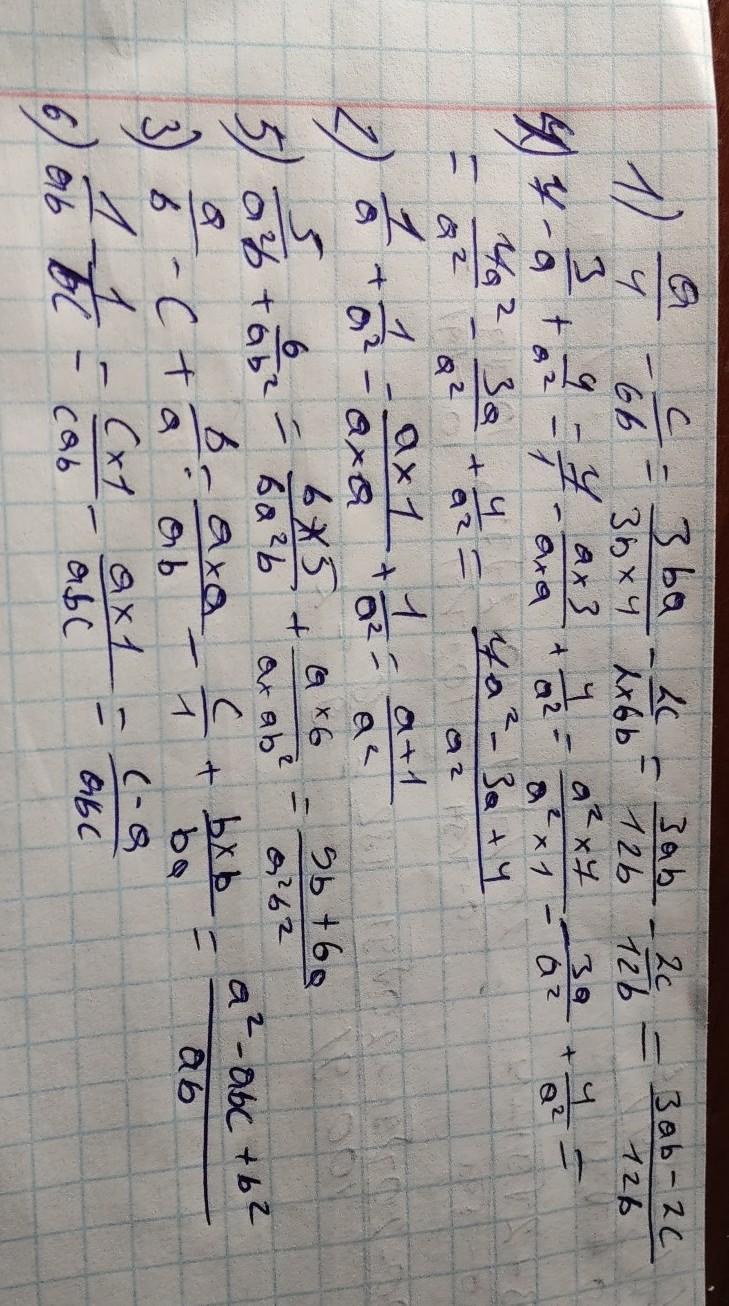 1) a/4 - c/6b = 3ba/3b×4 - 2c/2×6b = 3ab/12b - 2c/12b = 3ab-2c/12b
4) 4 - 3/a + 4/a² = 4/1 - a×3/a×a + 4/a² = a²×4/a²×1 - 3a/a² + 4/a² =
= 4a²/a² - 3a/a² + 4/a² = 4a² - 3a + 4/a²
2) 1/a + 1/a² = a×1/a×a + 1/a² = a+1/a²
5) 5/a²b + 6/ab² = b×5/ba²b + a×6/a×ab² = 5b+6a/a²b²
3) a/b - c + b/a = a×a/ab - c/1 + b×b/ba = a²-abc+b²/ab
6) 1/ab - 1/bc = c×1/cab - a×1/abc = c-a/abc